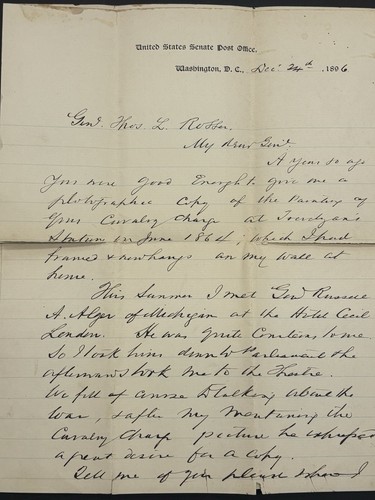 United States Senate Post Office,
Washington, D. C., Dec 24th, 1896
Genl. Thos. L. Rosser,
My dear Genl.
A year or so ago
you were good enough to give me a
photographic copy of the Painting of
your Cavalry Charge at Trevilyan's
Station in June 1864, which I had
framed & now hangs on my wall at
home.
This Summer I met Genl Russell
A. Alger of Michigan at the Hotel Cecil
London. He was quite Courteous to me.
So I took him down to Parliament the
afterwards took me to the Theatre.
We fell of course to talking about the
War, & after my mentioning the
Cavalry Charge picture he expressed
a great desire for a copy.
Tell me if you please where I